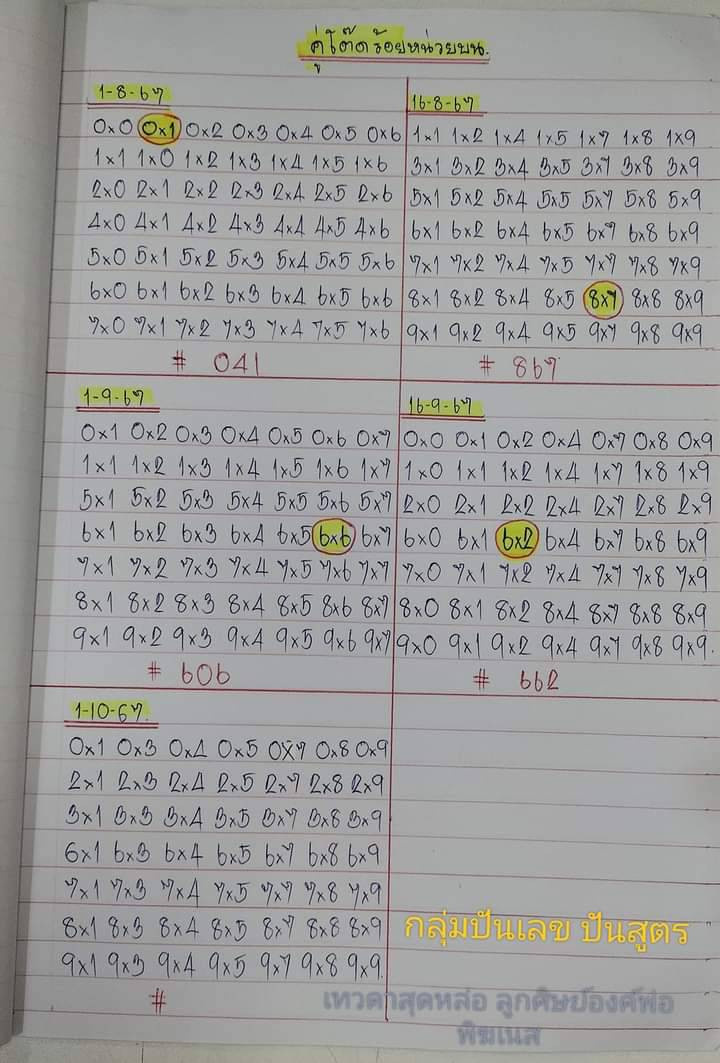 คู่โต๊ดร้อยหน่วยบน.
1-8-67
0x0 0x1 0x2 0x3 0x4 0x5 0x6
1x1 1x0 1x2 1x3 1x4 1x5 1x6
2x0 2x1 2x2 2x3 2x4 2x5 2x6
4x0 4x1 4x2 4x3 4x4 4x5 4x6
5x0 5x1 5x2 5x3 5x4 5x5 5x6
6x0 6x1 6x2 6x3 6x4 6x5 6x6
7x0 7x1 7x2 7x3 7x4 7x5 7x6
# 041
16-8-67
1x1 1x2 1x4 1x5 1x7 1x8 1x9
3x1 3x2 3x4 3x5 3x7 3x8 3x9
5x1 5x2 5x4 5x5 5x7 5x8 5x9
6x1 6x2 6x4 6x5 6x7 6x8 6x9
7x1 7x2 7x4 7x5 7x7 7x8 7x9
8x1 8x2 8x4 8x5 8x7 8x8 8x9
9x1 9x2 9x4 9x5 9x7 9x8 9x9
# 867
1-9-67
0x1 0x2 0x3 0x4 0x5 0x6 0x7
1x1 1x2 1x3 1x4 1x5 1x6 1x7
5x1 5x2 5x3 5x4 5x5 5x6 5x7
6x1 6x2 6x3 6x4 6x5 6x6 6x7
7x1 7x2 7x3 7x4 7x5 7x6 7x7
8x1 8x2 8x3 8x4 8x5 8x6 8x7
9x1 9x2 9x3 9x4 9x5 9x6 9x7
# 606
16-9-67
0x0 0x1 0x2 0x4 0x7 0x8 0x9
1x0 1x1 1x2 1x4 1x7 1x8 1x9
2x0 2x1 2x2 2x4 2x7 2x8 2x9
6x0 6x1 6x2 6x4 6x7 6x8 6x9
7x0 7x1 7x2 7x4 7x7 7x8 7x9
8x0 8x1 8x2 8x4 8x7 8x8 8x9
9x0 9x1 9x2 9x4 9x7 9x8 9x9.
# 662
1-10-67.
0x1 0x3 0x4 0x5 0x7 0x8 0x9
2x1 2x3 2x4 2x5 2x7 2x8 2x9
3x1 3x3 3x4 3x5 3x7 3x8 3x9
6x1 6x3 6x4 6x5 6x7 6x8 6x9
7x1 7x3 7x4 7x5 7x7 7x8 7x9
8x1 8x3 8x4 8x5 8x7 8x8 8x9
9x1 9x3 9x4 9x5 9x7 9x8 9x9.
#
กลุ่มปันเลข ปันสูตร
เทวดาสุดหล่อ ลูกศิษย์องค์พ่อ
พิฆเนส